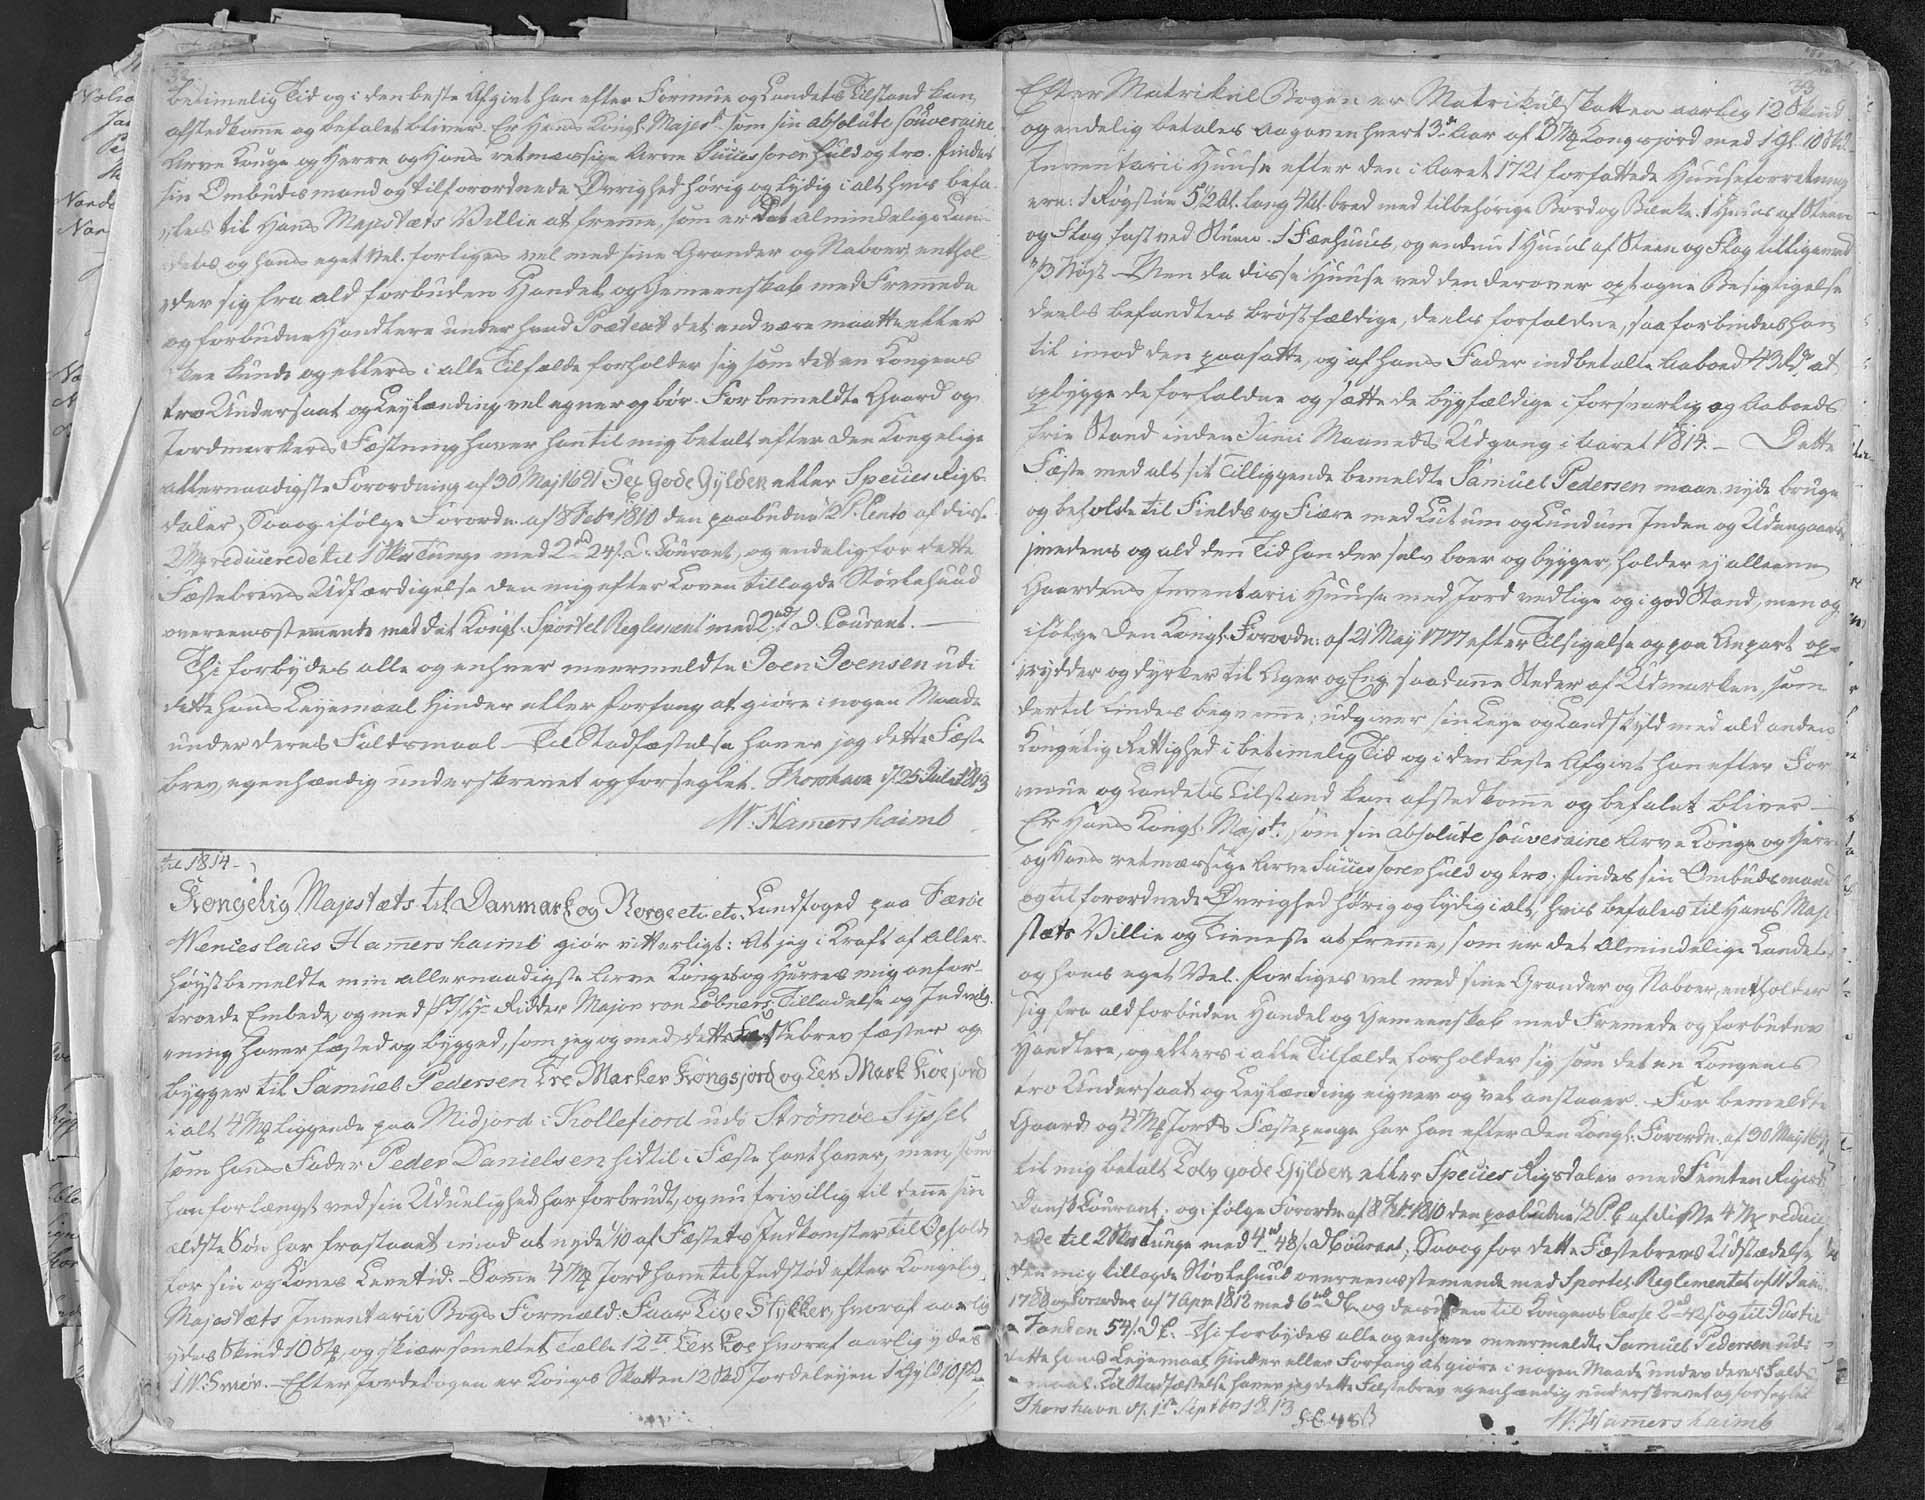 betimelig Tid og i den beste Afgivt han efter Formue og Landets Tilstand kan
afstedkomme og befalet bliver. Er Hans Kongl. Majest. som sin absolute souveraine
Arve Konge og Herre og Hans retmæssige Arve Successorer huld og troe. findes
sin Ombudsmand og tilforordnede Øvrighed hørig og lydig i alt hvis befa-
les til Hans Majestæts Villie at fremme, som er det almindelige Lan-
dets og hans eget Vel. forliges vel med sine Grander og Naboer, enthol-
der sig fra ald forbuden Handel og Gemeenskab med Fremmede
og forbudne Handlere under hvad Prætext det end være maatte eller
skee kunde og ellers i alle Tilfælde forholder sig som det en Kongens
troe Undersaat og Leylænding vel egner og bør. For bemeldte Gaard og
Jordmarkers Fæstning haver han til mig betalt efter den Kongelige
allernaadigste Forordning af 30 Maj 1691 Sex gode Gylden eller Species Rigs-
daler, Saa og ifølge Forordn. af 8 Febr 1810 den paabudne ½ P. Cento af disse
2 Mk reducerede til 1 Tunge med 2 rd 24 s. D. Courant, og endelig for dette
Fæstebrevs Udfærdigelse den mig efter Loven tillagde Støvlehuud
overeensstemmende med det Kongl. Sportel Reglement med 2 rd D. Courant. —
Thi forbydes alle og enhver meermeldte Joen Joensen udi
dette hans Leyemaal Hinder eller forfang at giøre i nogen Maade
under deres Faldsmaal — Til Stadfæstelse haver jeg dette Fæste
brev egenhændig underskrevet og forseglet. Thorshavn d. 25 Julii 1813
W. Hammershaimb
til 1814 —
Kongelig Majestæts til Danmark og Norge etc etc. Landfoged paa Færøe
Wenceslaus Hammershaimb giør vitterligt: At jeg i Kraft af Aller-
høystbemeldte min allernaadigste Arve Konges og Herres mig anfor-
troede Embede, og med Ridder Major von Løbners Tilladelse og Indvilg-
ning haver fæsted og bygged, som jeg og med dette Fæstebrev fæster og
bygger til Samuel Pedersen Tre Marker Kongsjord og Een Mark Koe jord
i alt 4 Mk liggende paa Midjord i Kollefiord udi Strømøe Syssel
som hans Fader Peder Danielsen hidtil i Fæste havt haver, men som
han forlængst ved sin Uduelighed har forbrudt, og nu frivillig til denne sin
ældste Søn har frastaaet imod at nyde 1/10 af Fæstets Indkomster til Ophold
for sin og Kones Levetid. — Samme 4 Mk Jord have til Indstød efter Kongelig
Majestæts Inventarii Bogs Formæld: Faar Live Stykker, hvoraf aarlig
ydes Skind 10 Stk, og skiær smeltet Tælle 12 tt. Een Koe hvoraf aarlig ydes
1 W. Smør. — Efter Jordebogen er Konge Skatten 12 Skd Jordeleyen 1 Gyld 10 Skd
33
Efter Matrikul Bogen er Matrikulskatten aarlig 12 Skind.
og endelig betales Aagaven hvert 3die Aar af 3 Mk Kongsjord med 1 Gl. 10 Skd.
Inventarii Huuse efter den i Aaret 1721 forfattede Huuseforretning
ere: 1 Røgstue 5½ Al. lang 4 Al. bred med tilbehørige Bord og Bænke. 1 Huus af Steen
og Flag fast ved Stuen. 1 Fæehuus, og endnu 1 Huus af Steen og Flag tilligemed
Men da disse Huuse ved den derover optagne Besigtigelse
deels befandtes brøstfældige, deels forfaldne, saa forbindes han
til imod den paasatte, og af hans Fader indbetalte Aaboed at
opbygge de forfaldne og sætte de bygfældige i forsvarlig og Aaboeds
frie Stand inden Junii Maaneds Udgang i Aaret 1814. — Dette
Fæste med alt sit Tilliggende bemeldte Samuel Pedersen maae nyde bruge
og beholde til Fields og Fiære med Lutum og Lundum Inden og Udengaards
imedens og ald den Tid han der selv boer og bygger, holder ej alleene
Gaardens Inventarii Huuse med Jord vedlige og i god Stand, men og
ifølge den Kongl. Forordn: af 21 May 1777 efter Tilsigelse og paa Anpart op-
rydder og dyrker til Ager og Eng saadanne Steder af Udmarken, som
dertil findes beqvemme; udgiver sin Leye og Landskyld med ald anden
Kongelig Rettighed i betimelig Tid og i den beste Afgivt han efter For
mue og Landets Tilstand kan afstedkomme og befalet bliver —
Er Hans Kongl. Majst. som sin absolute souveraine Arve Konge og Herre
og hans retmæssige Arve Successorer huld og troe. findes sin Ombudsmand
og tilforordnede Øvrighed hørig og lydig i alt, hvis befales til Hans Maje
stæts Villie og Tieneste at fremme, som er det Almindelige Landets
og hans eget Vel. forliges vel med sine Grander og Naboer, entholder
sig fra ald forbuden Handel og Gemeenskab med Fremmede og forbudne
Handlere, og ellers i alle Tilfælde forholder sig som det en Kongens
troe Undersaat og Leylænding eigner og vel anstaaer. — For bemeldte
Gaard og 4 Mk Jords Fæstepenge har han efter den Kongl. Forordn. af 30 Maj 1691
til mig betalt Tolv gode Gylden eller Species Rigsdaler med Femten Rigsd
Dansk Courant; og ifølge Forordn af 8 Febr. 1810 den paabudne ½ P.C. af disse 4 Mk reduce
rede til 2 Tunge med 4 rd 48 s. D Courant; Saa og for dette Fæstebrevs Udstædelse
den mig tillagde Støvlehuud overeensstemmende med Sportel Reglementet af
1788 og Forordn af 7 Apr 1812 med 6 rd DC. og desuden til Kongens Casse 2 rd 42 s og til Justits
Fonden 54 s. DC. — Thi forbydes alle og enhver meermeldte Samuel Pedersen udi
dette hans Leyemaal Hinder eller Forfang at giøre i nogen Maade under deres Falds
maal. Til Stadfæstelse haver jeg dette Fæstebrev egenhændig underskrevet og forseglet
Thorshavn d. 1ste Septbr 1813
W. Hammershaimb